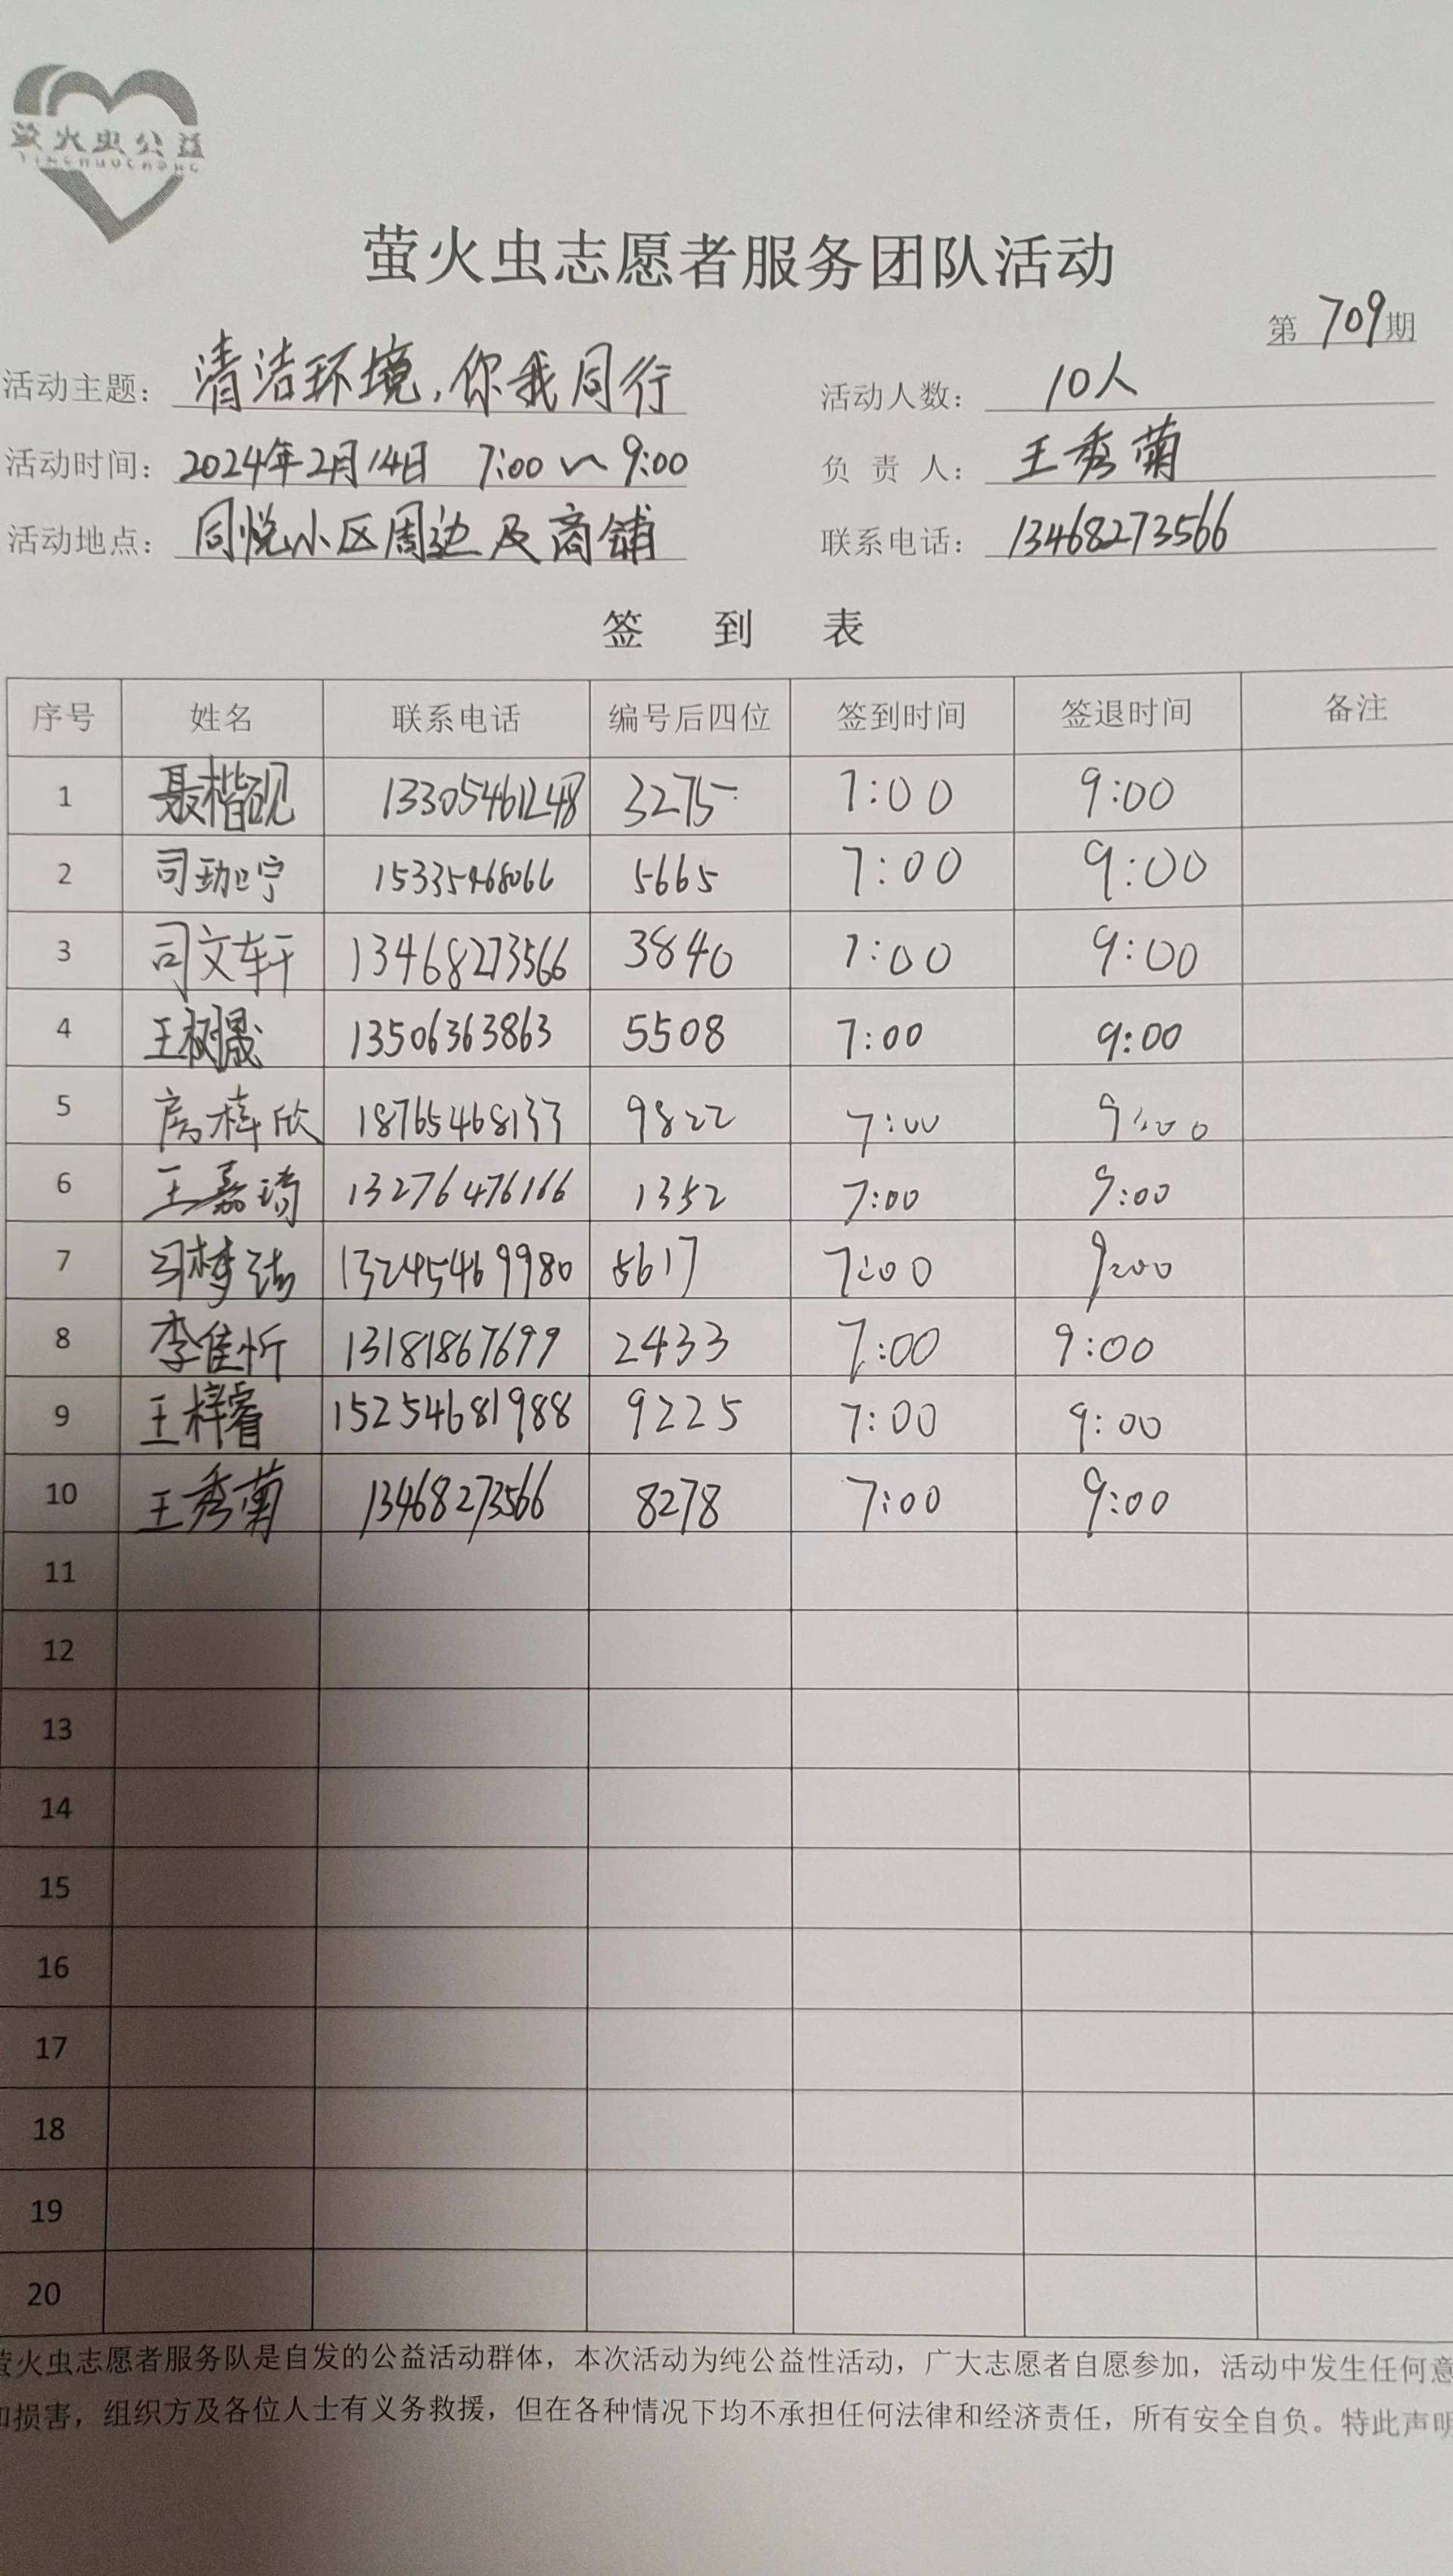 萤火虫公益
YINGHUOCHONG
萤火虫志愿者服务团队活动
第 709 期
活动主题: 清洁环境,你我同行 活动人数: 10人
活动时间: 2024年2月14日 7:00~9:00 负 责 人: 王秀菊
活动地点: 同悦小区周边及商铺 联系电话: 13468273566
签 到 表
序号 姓名 联系电话 编号后四位 签到时间 签退时间 备注
1 聂楷砚 13305461248 3275 7:00 9:00
2 司 宁 15335468066 5665 7:00 9:00
3 司文轩 13468273566 3840 7:00 9:00
4 王树晟 13506363863 5508 7:00 9:00
5 房梓欣 18765468133 9822 7:00 9:00
6 王嘉琦 13276476166 1352 7:00 9:00
7 梦 7:00 9:00
8 李佳忻 13181867699 2433 7:00 9:00
9 王梓睿 15254681988 9225 7:00 9:00
10 王秀菊 13468273566 8278 7:00 9:00
11
12
13
14
15
16
17
18
19
20
萤火虫志愿者服务队是自发的公益活动群体，本次活动为纯公益性活动，广大志愿者自愿参加，活动中发生任何意
和损害，组织方及各位人士有义务救援，但在各种情况下均不承担任何法律和经济责任，所有安全自负。特此声明